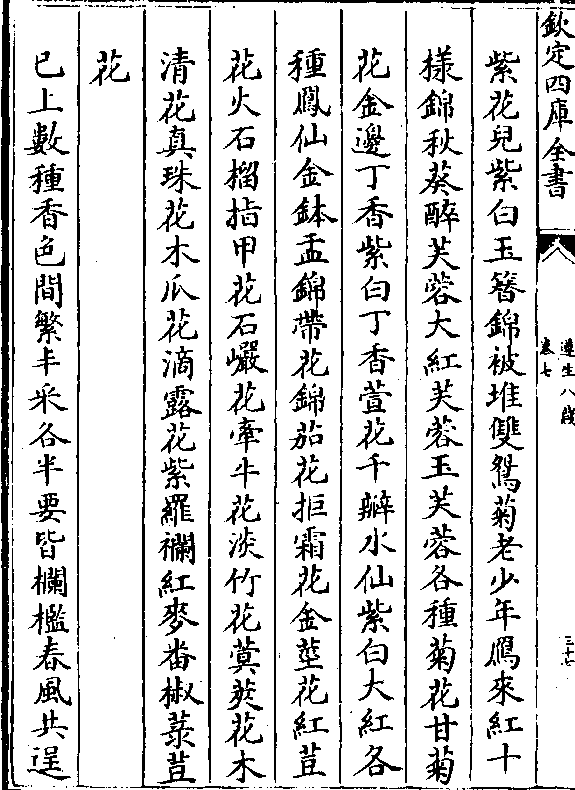 欽定四庫全書
遵生八牋
卷七
三十七
紫花兒紫白玉簪錦被堆雙鴛菊老少年鴈來紅十
樣錦秋葵醉芙蓉大紅芙蓉玉芙蓉各種菊花甘菊
花金邊丁香紫白丁香萱花千瓣水仙紫白大紅各
種鳳仙金鉢盂錦帶花錦茄花拒霜花金莖花紅荳
花火石榴指甲花石巖花牽牛花淡竹花蓂莢花木
清花真珠花木瓜花滴露花紫羅襴紅麥番椒菉荳
花
已上數種香色間繁丰采各半要皆欄檻春風共逞